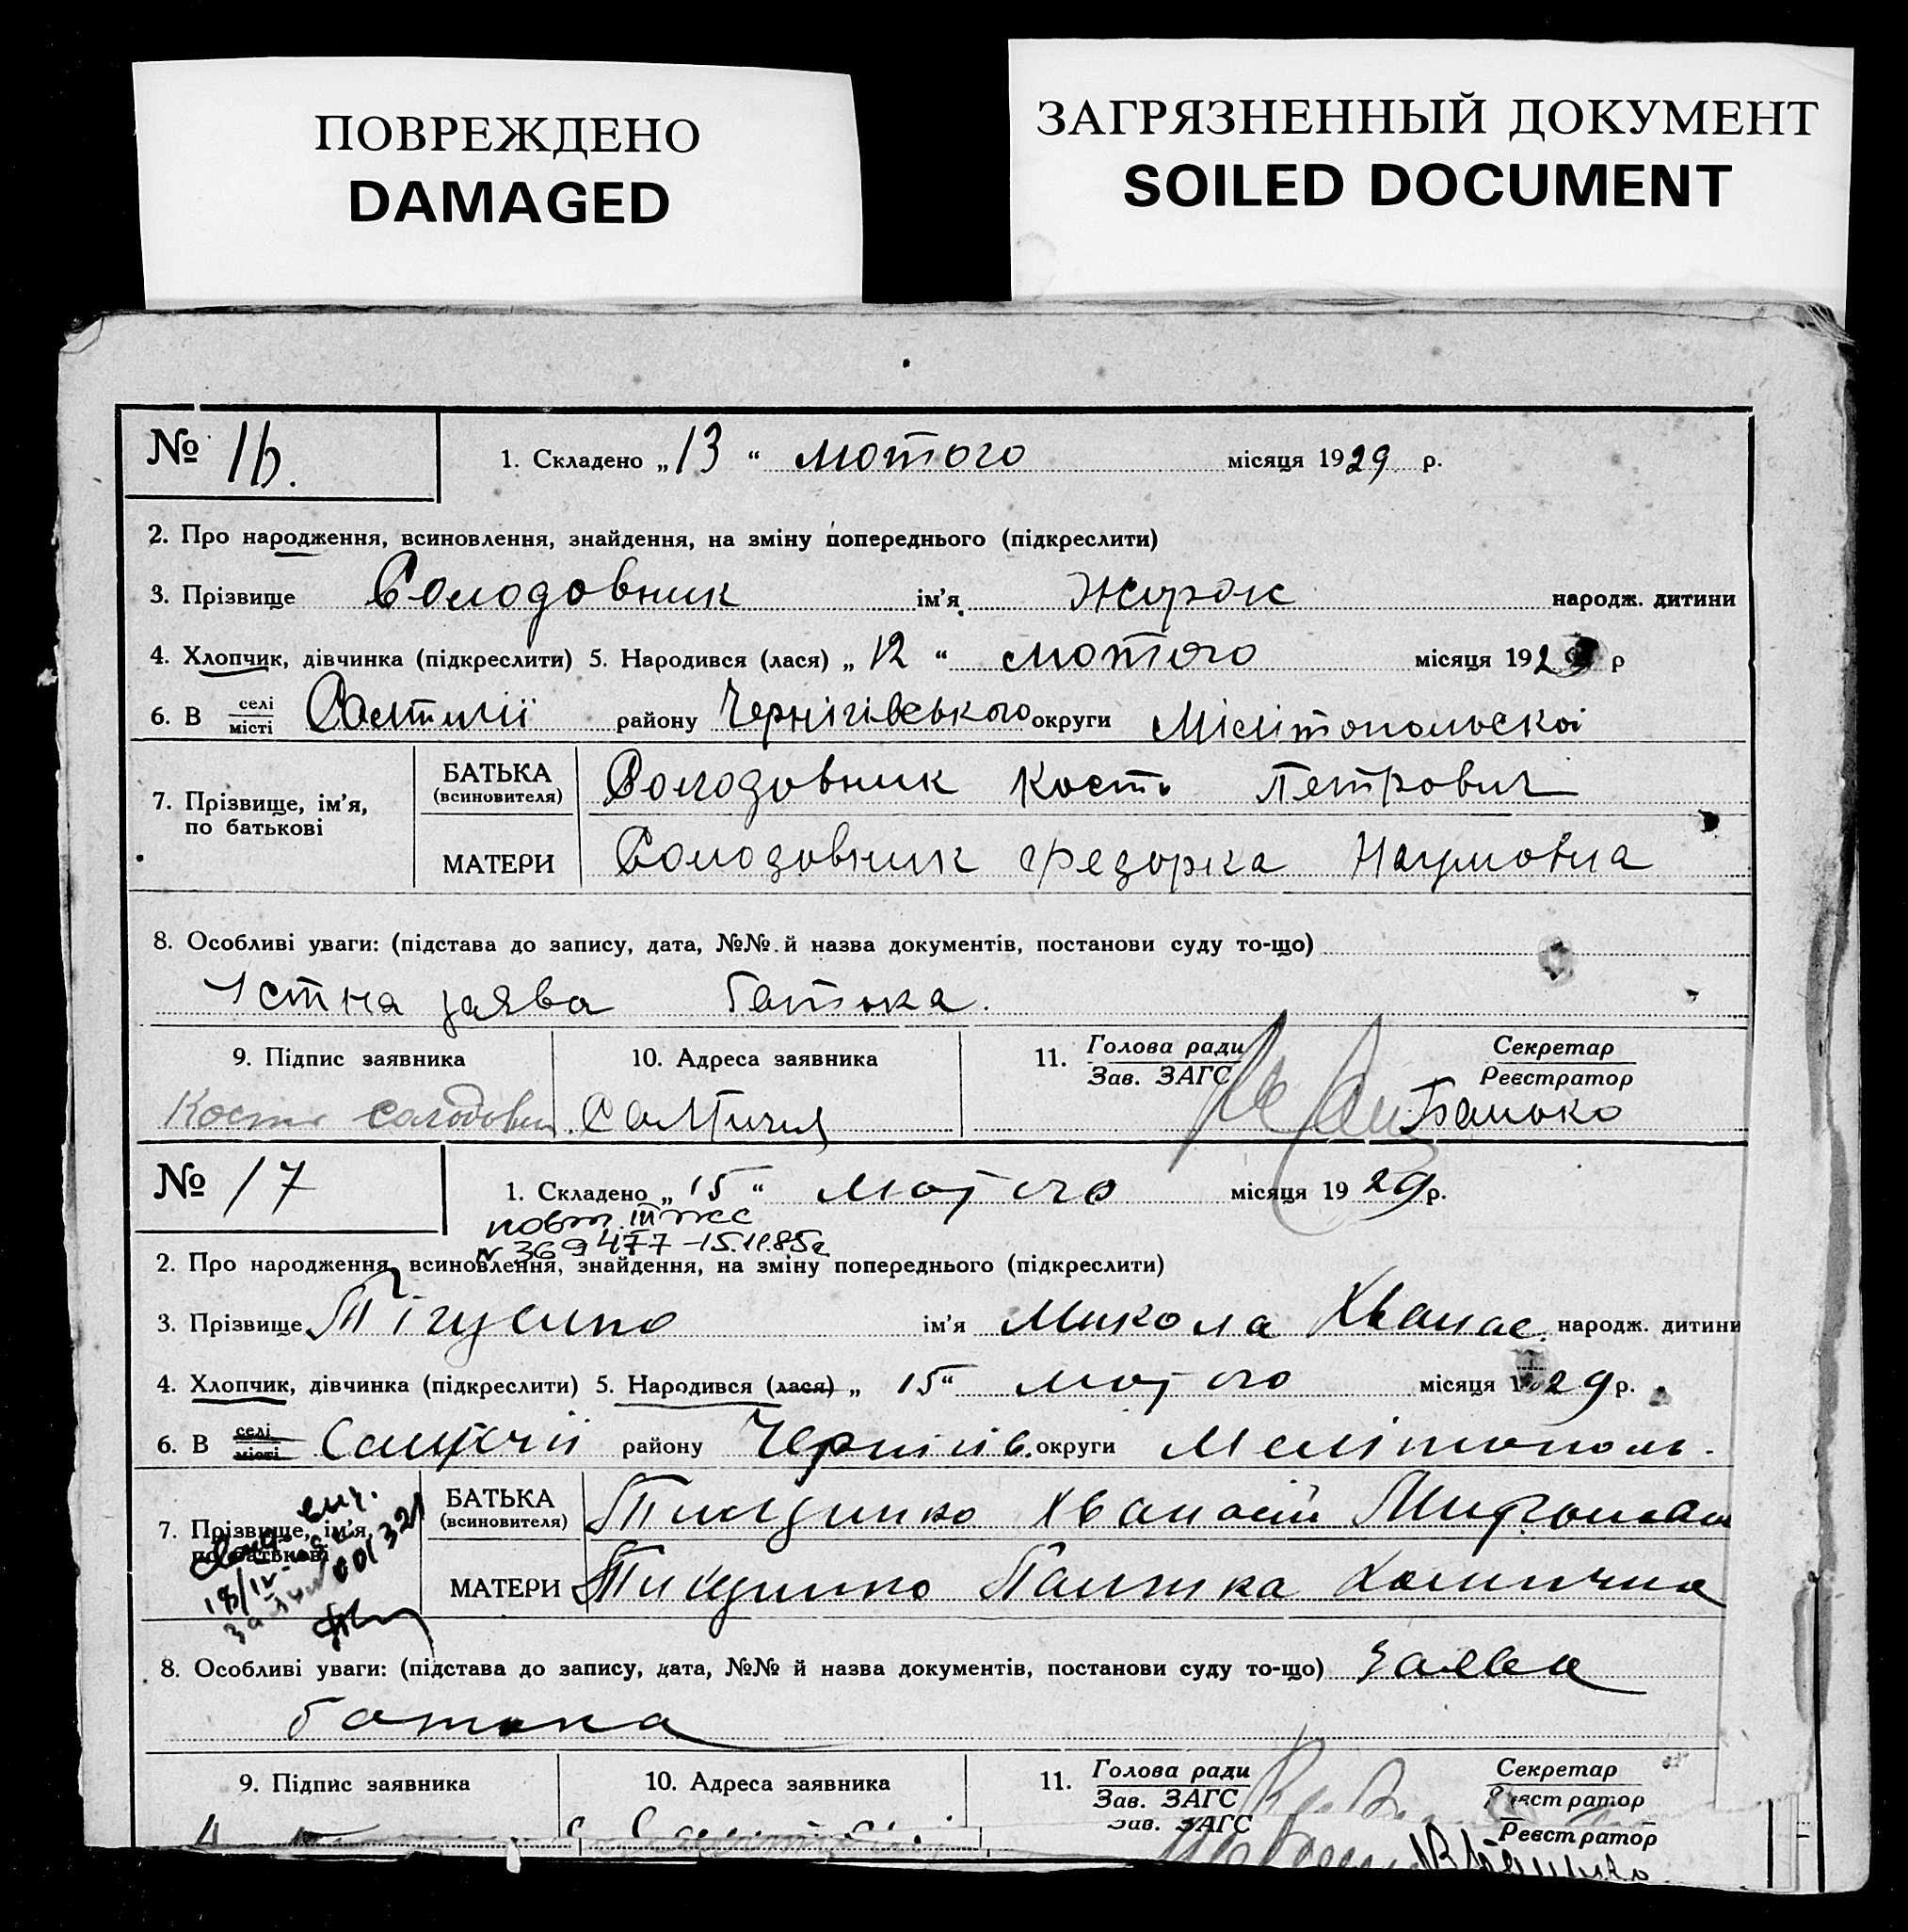 ПОВРЕЖДЕНО
DAMAGED
ЗАГРЯЗНЕННЫЙ ДОКУМЕНТ
SOILED DOCUMENT
№ 16. 1. Складено „13“ лютого місяця 1929 р.
2. Про народження, всиновлення, знайдення, на зміну попереднього (підкреслити)
3. Прізвище Солодовник ім’я народж. дитини
4. Хлопчик, дівчинка (підкреслити) 5. Народився (лася) „12“ лютого місяця 1929 р
6. В селі місті Салтичії району Чернігівського округи Мелітопольскої
7. Прізвище, ім’я, по батькові
БАТЬКА (всиновителя) Солодовник Кость Петрович
МАТЕРИ Солодовник Федорка Наумовна
8. Особливі уваги: (підстава до запису, дата, №№ й назва документів, постанови суду то-що)
Устна заява батька.
9. Підпис заявника 10. Адреса заявника 11. Голова ради Зав. ЗАГС Секретар Реєстратор
Кость Салтичия
№ 17 1. Складено „15“ лютого місяця 1929 р.
повт.
№ 369477 - 15.11.85г
2. Про народження, всиновлення, знайдення, на зміну попереднього (підкреслити)
3. Прізвище ім’я Микола Хванас. народж. дитини
4. Хлопчик, дівчинка (підкреслити) 5. Народився (лася) „15“ лютого місяця 1929 р.
6. В селі місті Салтичії району Чернігів. округи Мелітополь.
7. Прізвище, ім’я, по батькові
БАТЬКА (всиновителя) Хванасій
МАТЕРИ
8. Особливі уваги: (підстава до запису, дата, №№ й назва документів, постанови суду то-що) Заява
батька
9. Підпис заявника 10. Адреса заявника 11. Голова ради Зав. ЗАГС Секретар Реєстратор
Зав. ЗАГС Реєстратор